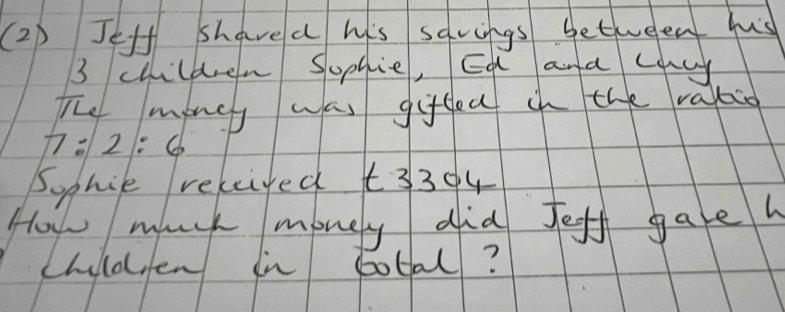 (2) Jeff shared his savings between his
3 children Sophie, Ed and Lucy
The money was gifted in the ratio
7:2:6
Sophie received £3304
How much money did Jeff gave h
children in total?